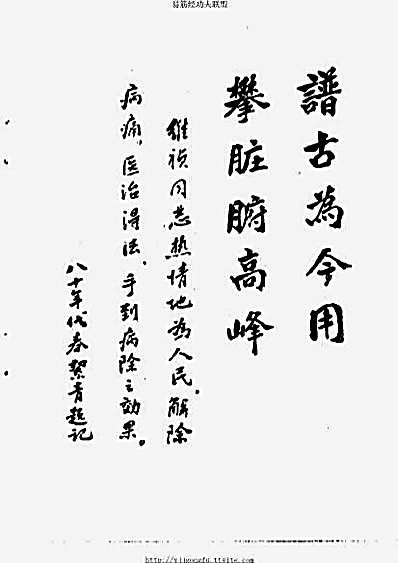 易筋经功夫联盟
譜古為今用
攀脏腑高峰
維祯同志热情地为人民。解除
病痛，医治得法。手到病除之効果。
八十年代春絜青题记
http://yijgongfu.ttsite.com